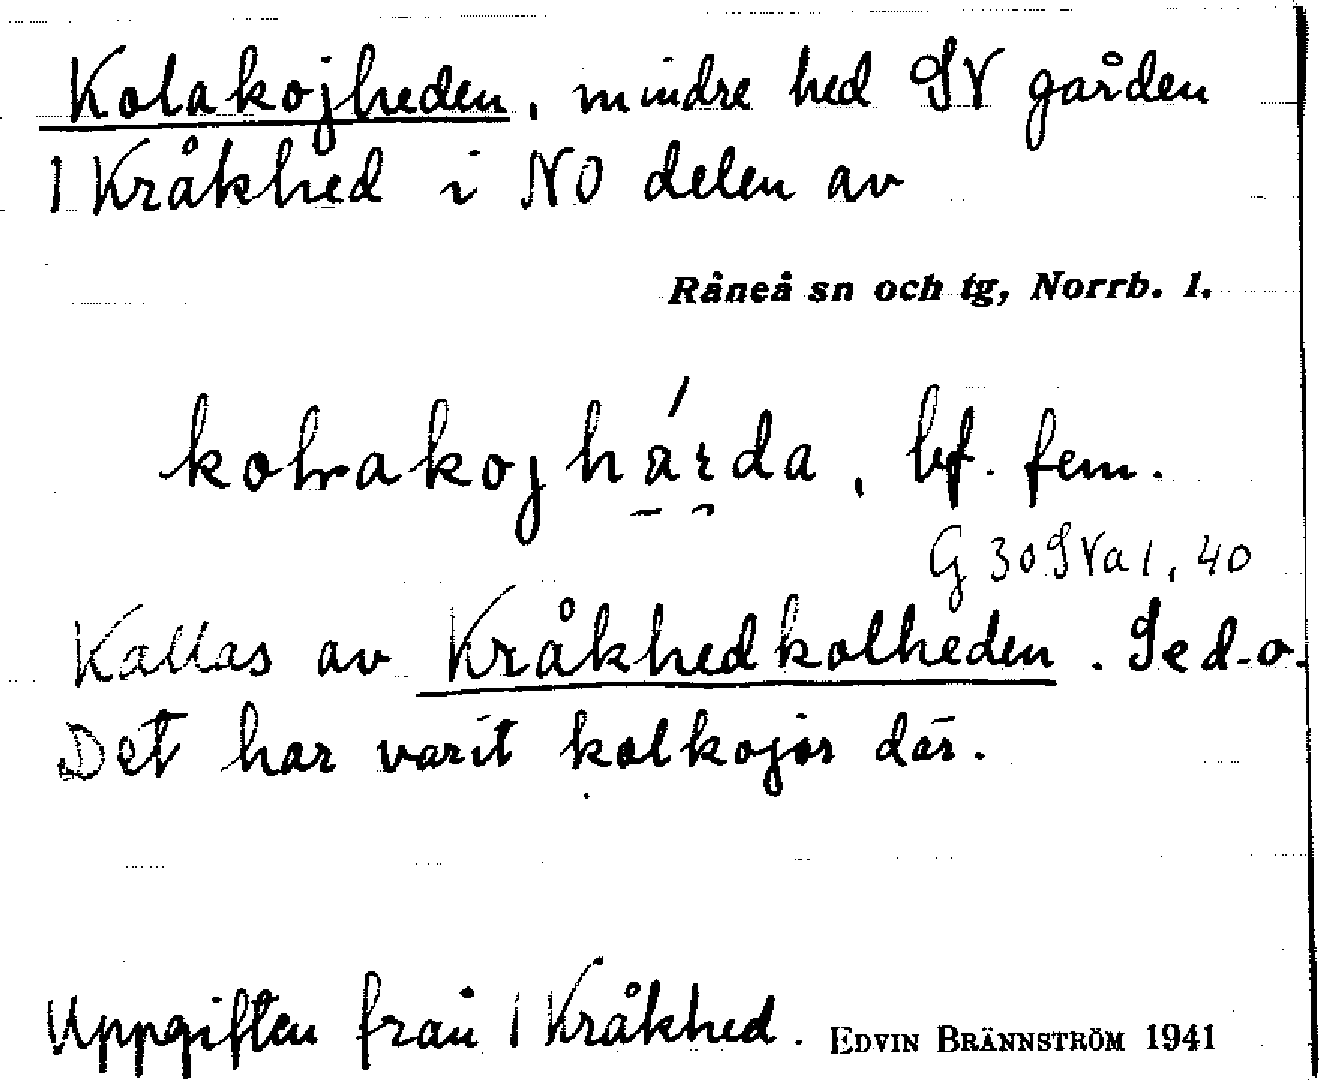 Kolakojheden, mindre hed SV gården
1 Kråkhed i NO delen av
Råneå sn och tg, Norrb. l.
bf. fem.
G 30 SVa 1, 40
Kallas av Kråkhedkolheden. Se d.o.
Det har varit kolkojor där.
Uppgiften från 1 Kråkhed. EDVIN BRÄNNSTRÖM 1941